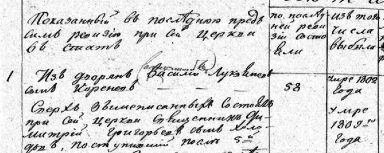 Показанный въ послѣднюю предъ
симъ ревизію при сей церкви
въ
по послѣд
ней реви
зіи состо
яли
изъ того
числа
выбыло
1
Изъ дворянъ Василій Лукьяновъ
сынъ
53
умре 1802
года
Сверхъ вышеписанныхъ состоялъ
при сей церкви священникъ Ди
митрій Григорьевъ сынъ
поступившій послѣ 5й
Умре
1809го
года